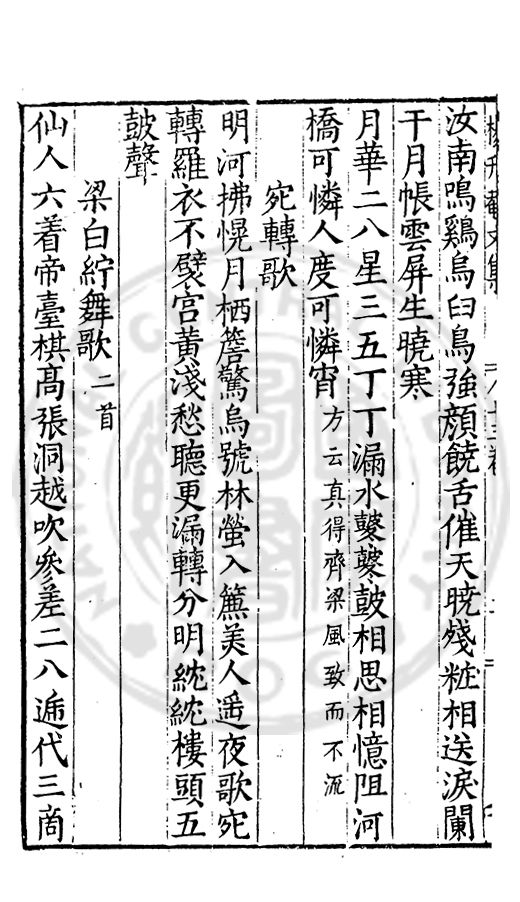 汝南鳴鷄烏臼鳥強顔饒舌催天曉殘粧相送淚闌
干月帳雲屏生曉寒
月華二八星三五丁丁漏水鼕鼕鼓相思相憶阻河
橋可憐人度可憐宵方云真得齊梁風致而不流
宛轉歌
明河拂幌月栖簷驚烏號林螢入簾美人遥夜歌宛
轉羅衣不襞宮黄淺愁聽更漏轉分明紞紞樓頭五
鼓聲
梁白紵舞歌二首
仙人六着帝臺棋髙張洞越吹參差二八逓代三商